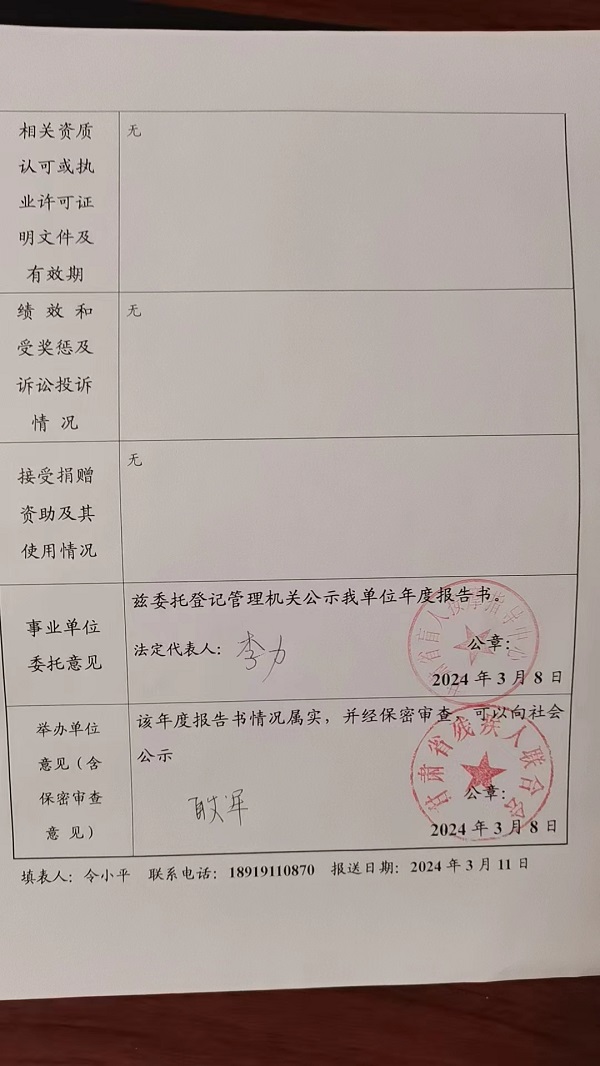 相关资质
认可或执
业许可证
明文件及
有效期
无
绩 效 和
受奖惩及
诉讼投诉
情 况
无
接受捐赠
资助及其
使用情况
无
事业单位
委托意见
兹委托登记管理机关公示我单位年度报告书。
法定代表人：李力
公章：
2024 年 3 月 8 日
甘肃省盲人按摩指导中心
举办单位
意见（含
保密审查
意 见）
该年度报告书情况属实，并经保密审查，可以向社会
公示
公章：
2024 年 3 月 8 日
甘肃省残疾人联合会
填表人：令小平 联系电话：18919110870 报送日期：2024 年 3 月 11 日